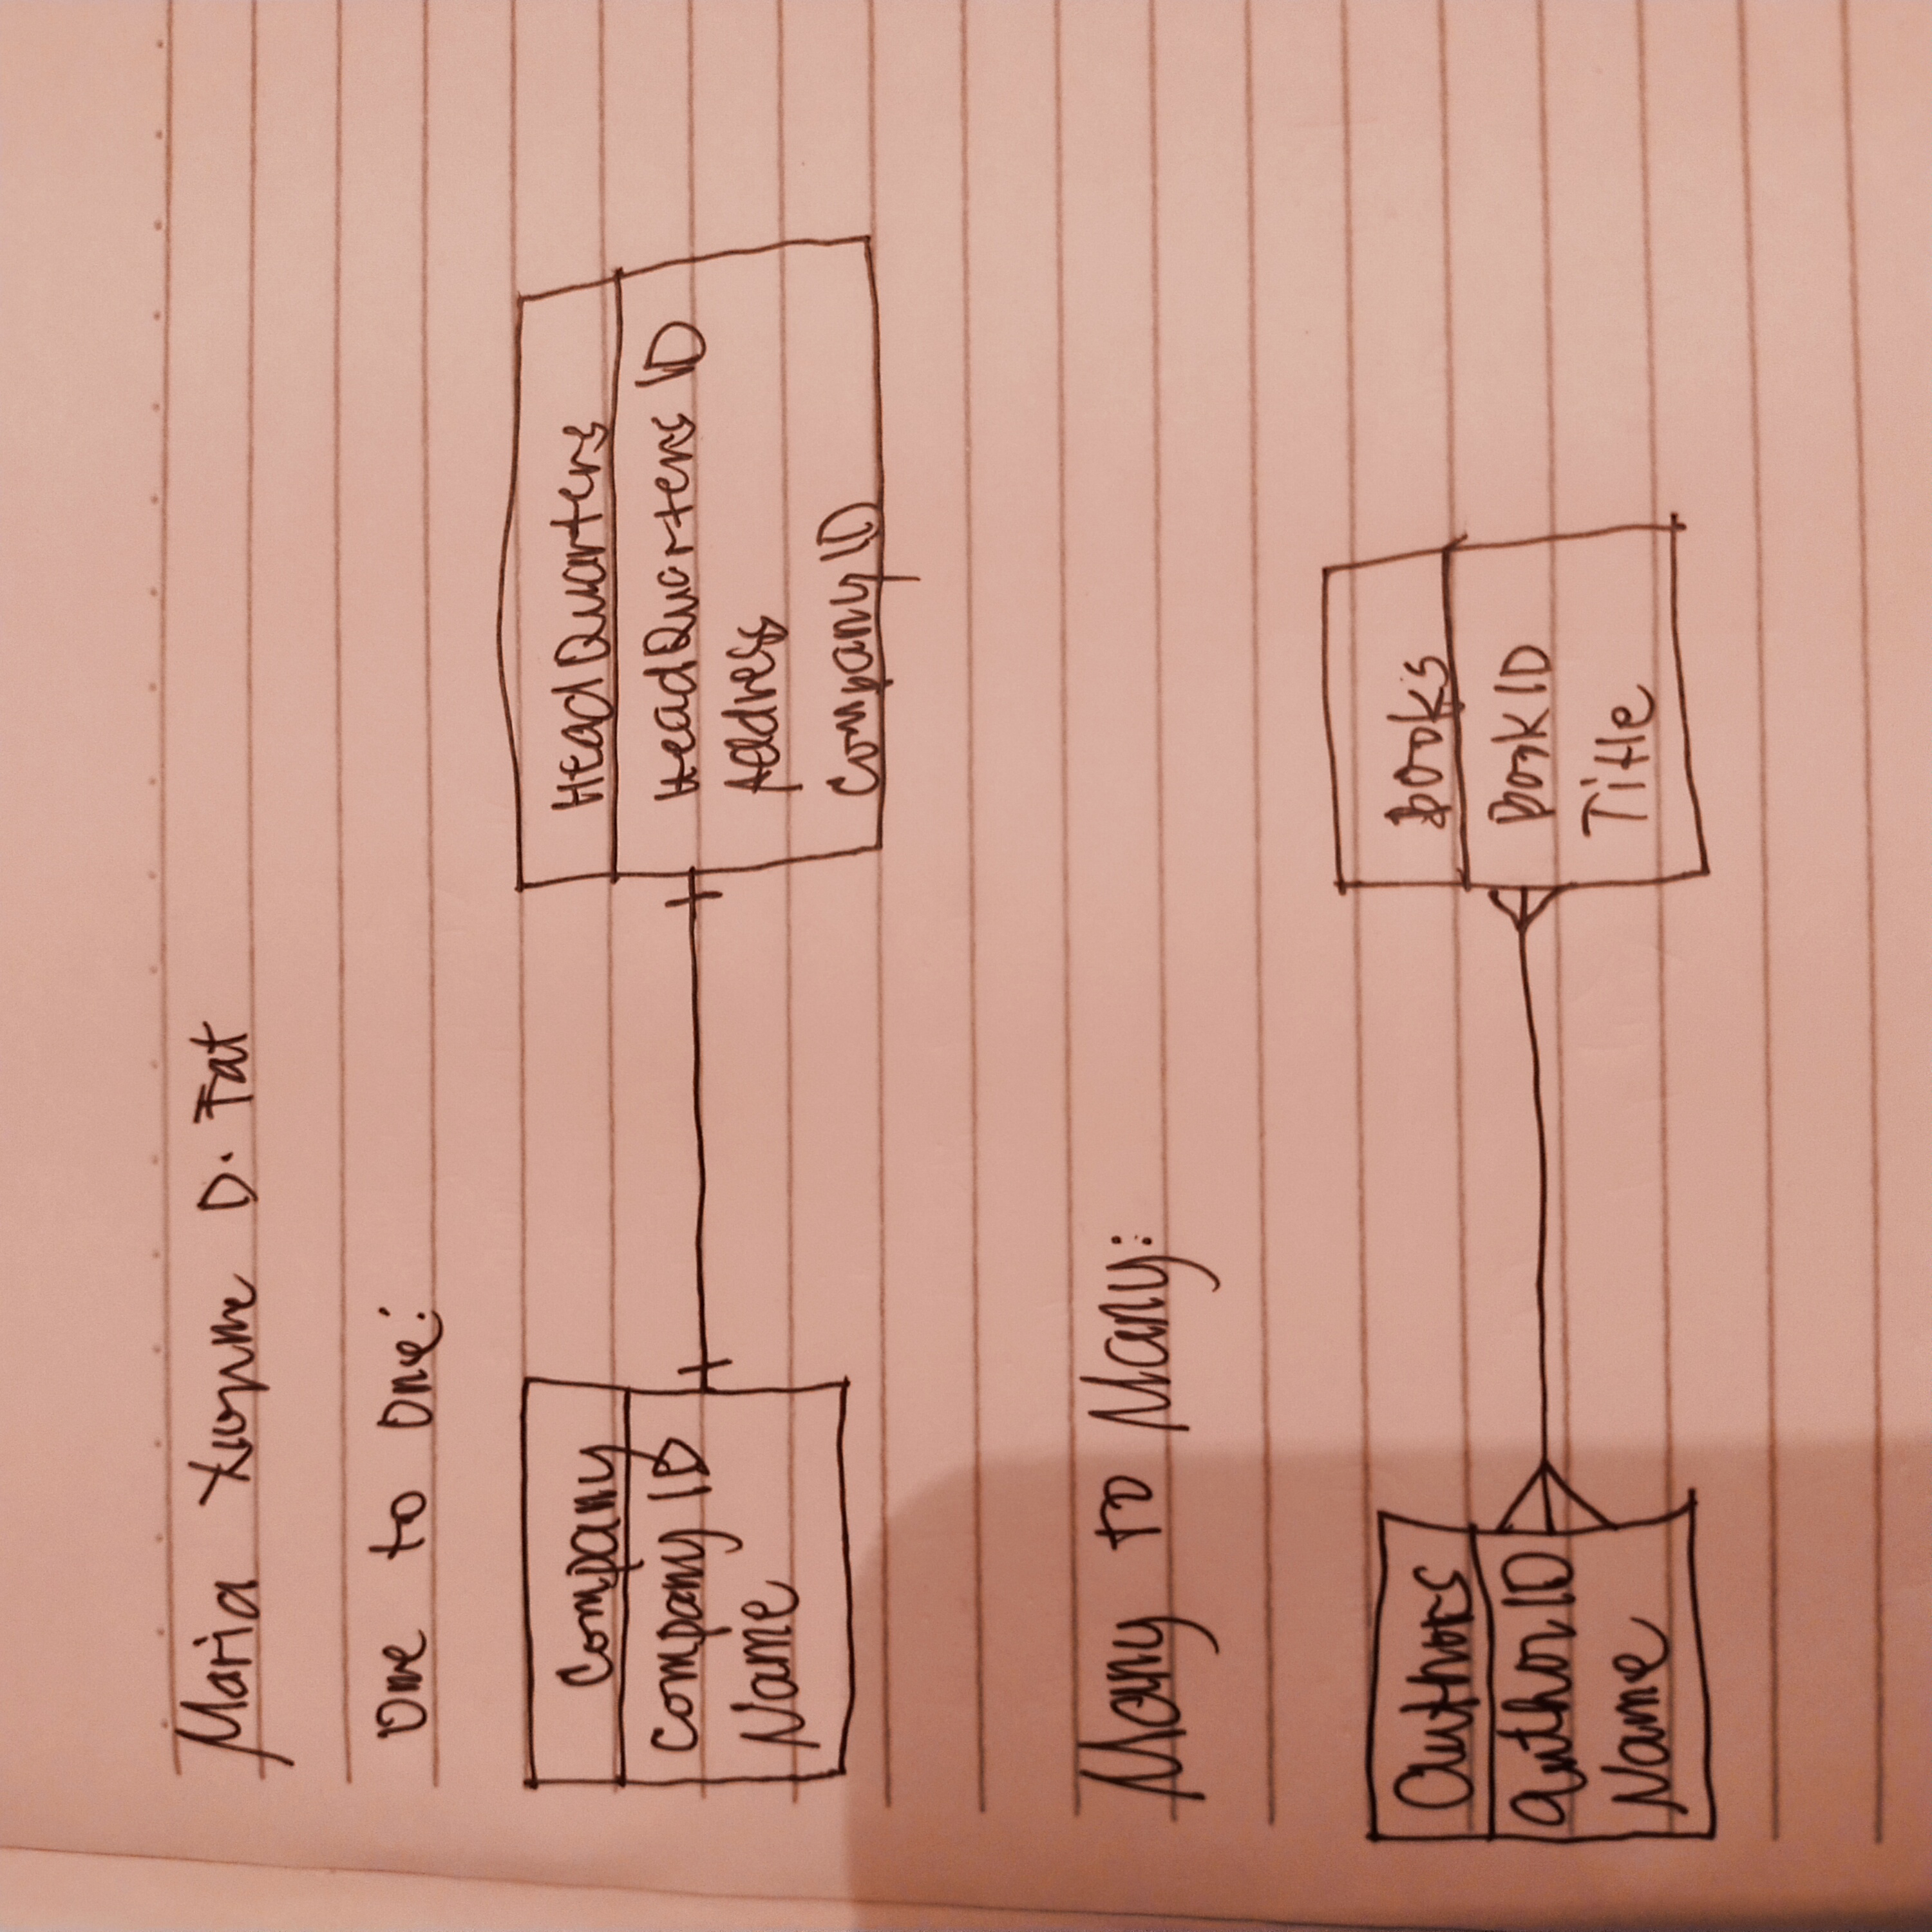 Maria D. Fat
One to One:
Company
Company ID
Name
HeadQuarters
HeadQuarters ID
Address
Company ID
Many to Many:
Authors
Author ID
Name
Books
Book ID
Title